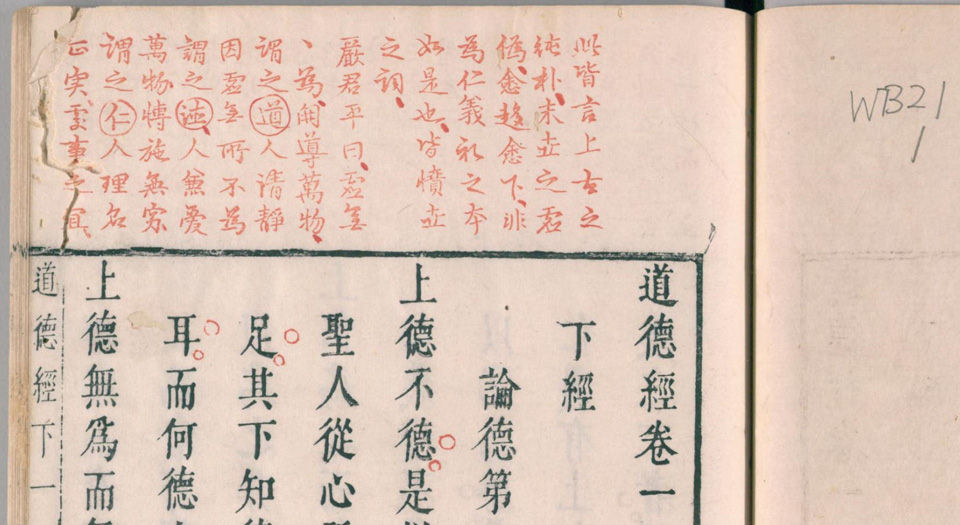 此皆言上古之
純朴、末世之澆
僞、愈趨愈下、非
為仁義礼之本
如是也、皆憤世
之詞、
嚴君平曰、虛無
、為、開導萬物、
謂之道人清靜
因應無所不為
謂之德、人兼愛
萬物博施無窮
謂之仁人理名
正実事之宜、
道德經卷一
下經
論德第
上德不德是
聖人從心
足其下知
耳而何德
上德無爲而
道德經下一
WB21
1